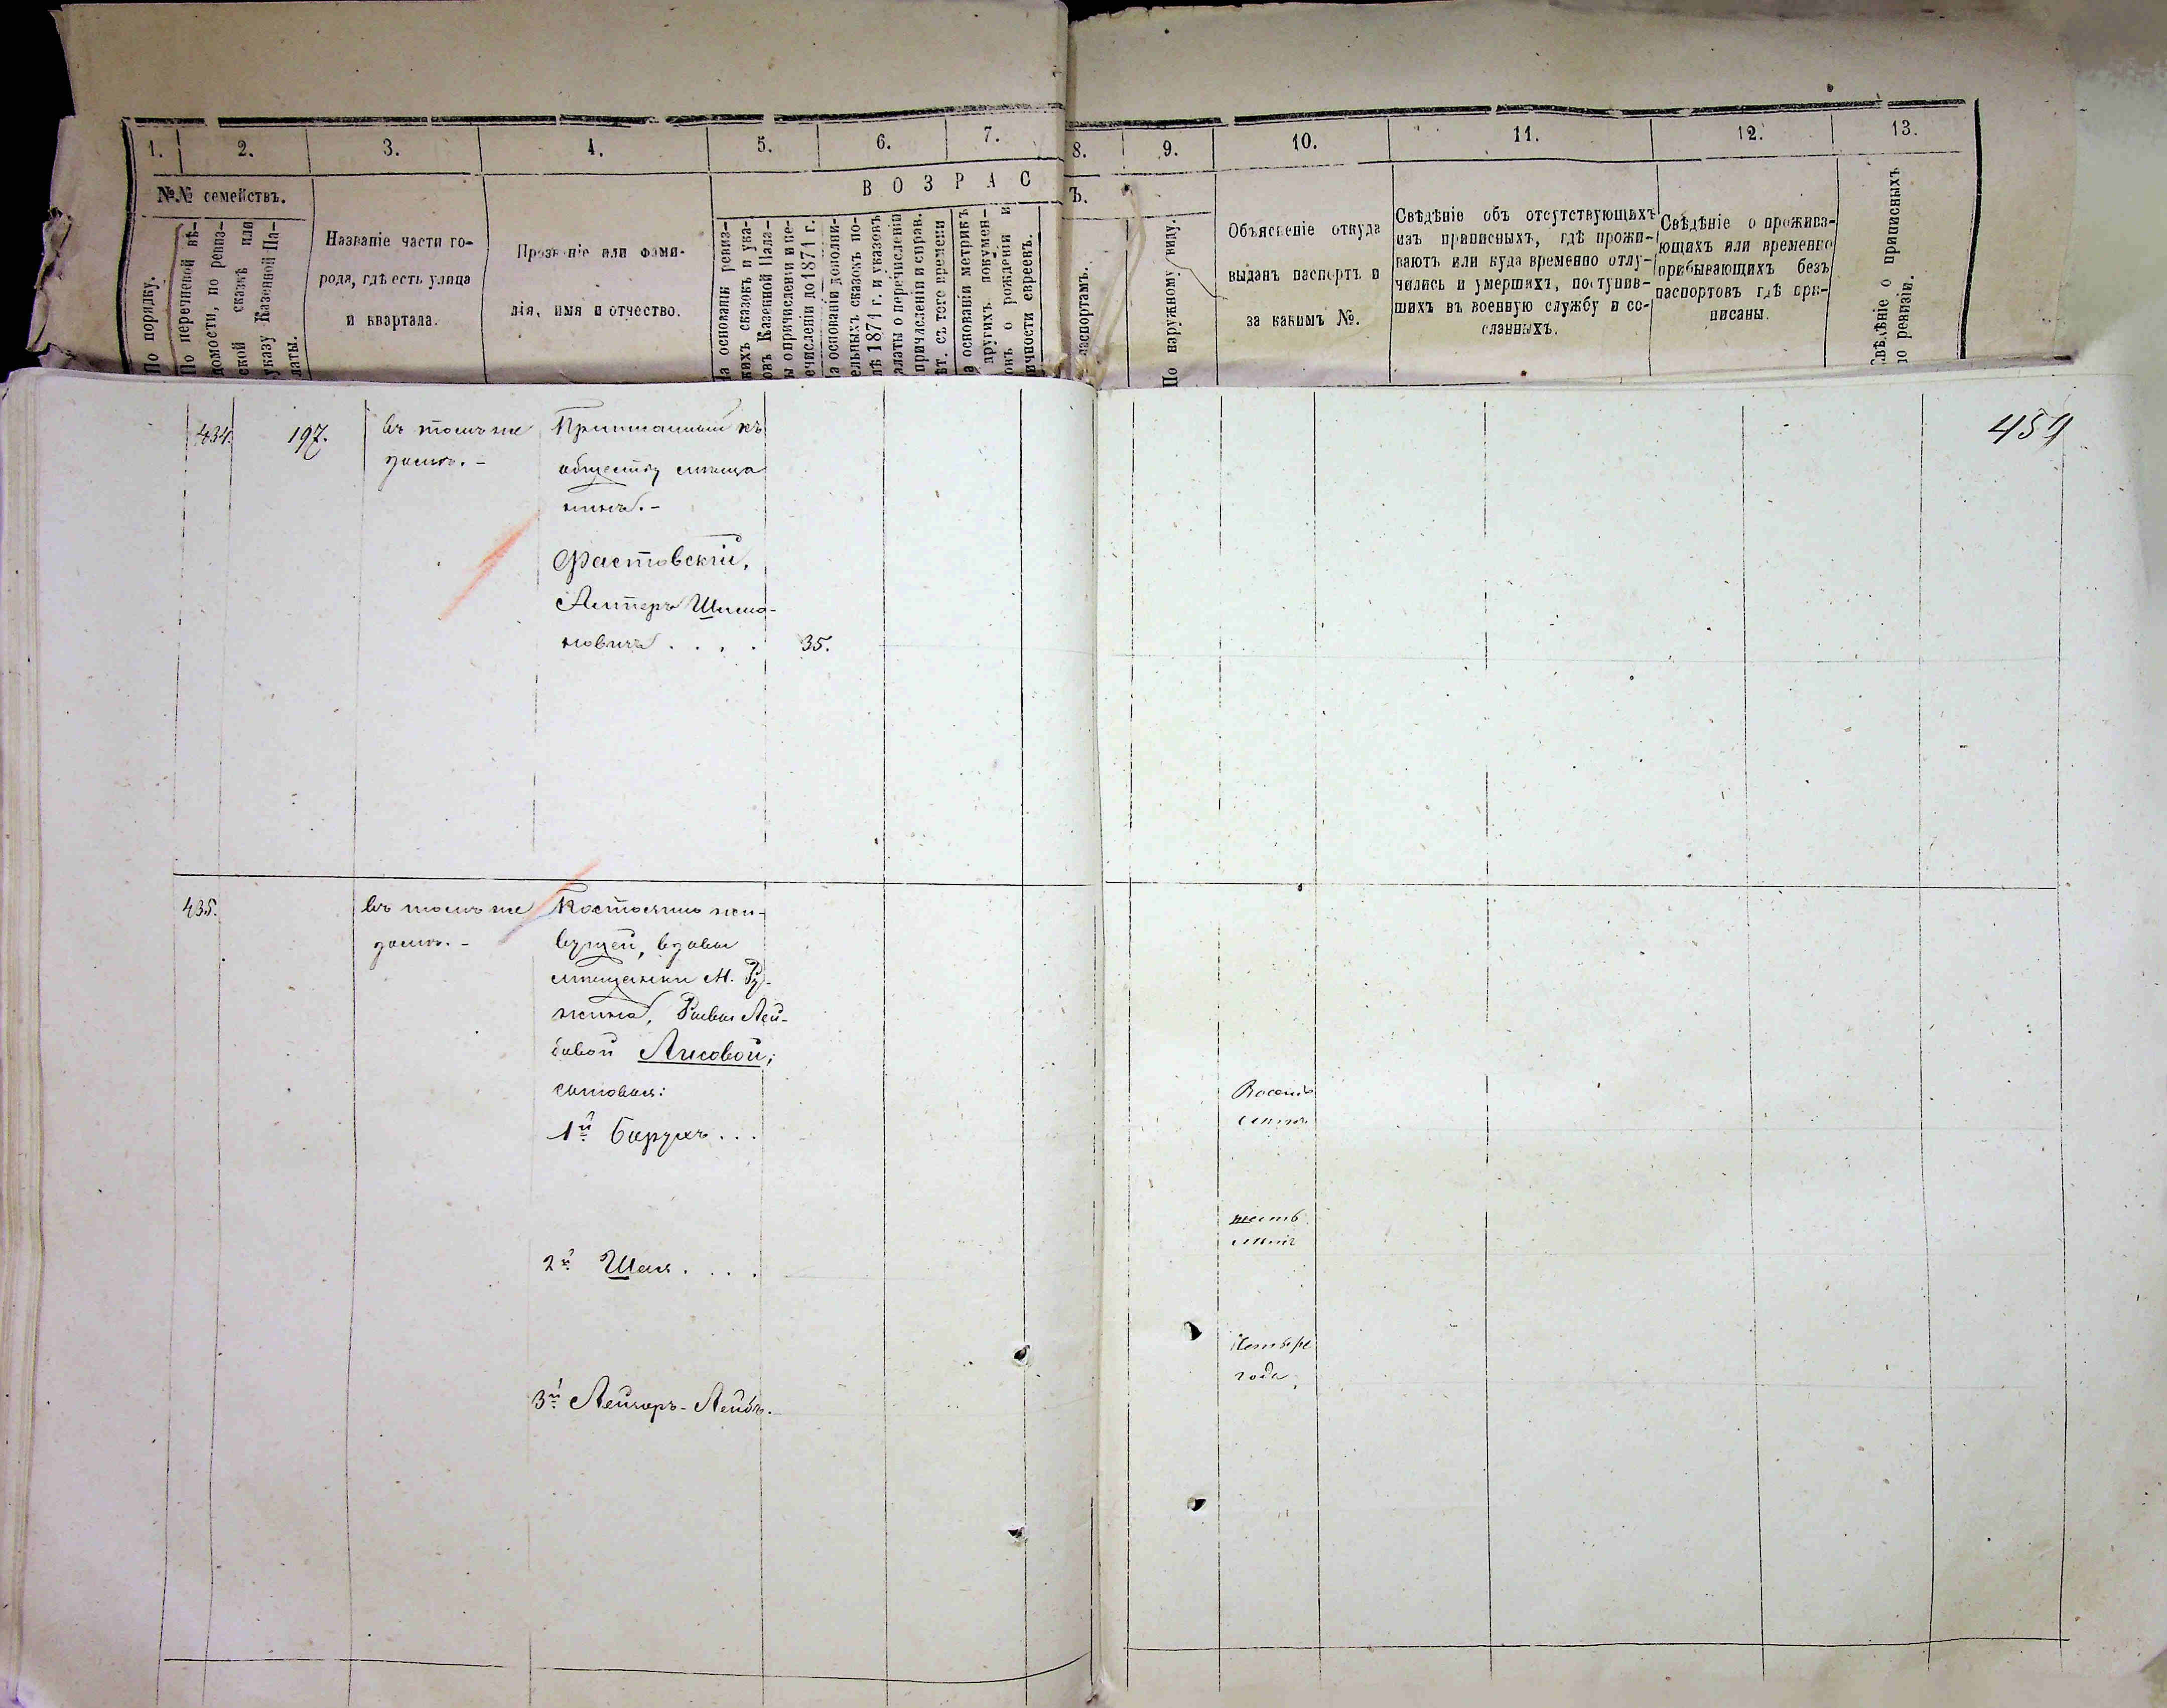 1. 2. 3. 4. 5. 6. 7. 8. 9. 10. 11. 12. 13.
№№ семействъ.
По порядку.
По перечневой вѣ-
домости, по ревиз-
ской сказкѣ или
указу Казенной Па-
латы.
Названіе части го-
рода, гдѣ есть улица
и квартала.
Прозваніе или фами-
лія, имя и отчество.
ВОЗРАСТЪ.
На основаніи ревиз-
скихъ сказокъ и ука-
зовъ Казенной Пала-
ты о причисленіи и пе-
речисленіи до 1871 г.
На основаніи дополни-
тельныхъ сказокъ по-
слѣ 1871 г. и указовъ
палаты о перечисленіи
причисленіи и справ.
лѣт. съ того времени
На основаніи метрикъ
другихъ докумен-
товъ о рожденіи и
личности евреевъ.
паспортамъ.
По наружному виду.
Объясненіе откуда
выданъ паспортъ и
за какимъ №.
Свѣдѣніе объ отсутствующихъ
изъ приписныхъ, гдѣ прожи-
ваютъ или куда временно отлу-
чились и умершихъ, поступив-
шихъ въ военную службу и со-
сланныхъ.
Свѣдѣніе о прожива-
ющихъ или временно
прибывающихъ безъ
паспортовъ гдѣ при-
писаны.
Свѣдѣніе о приписныхъ
по ревизіи.
459
434. 197. въ томъ же
домѣ. -
Приписанный къ
обществу мѣща
нинъ. -
Фастовскій,
Лейзеръ Шимо-
новичъ . . . . 35.
435. въ томъ же
домѣ. -
Постоянно жи-
вущей, вдовы
мѣщанки М. Ру-
жина, Ривы Лей-
бовой Лисовой;
сыновья:
1й Барухъ . . .
Восемь
лѣтъ
2й Шая . . . .
шесть
лѣтъ
3й Лейзеръ-Лейбъ.
Четыре
года